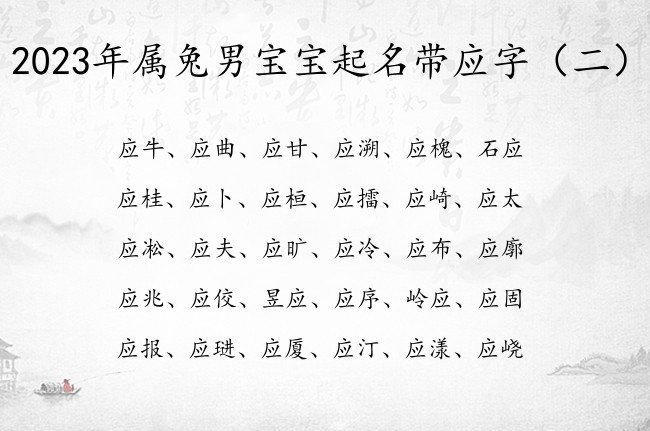 2023年属兔男宝宝起名带应字（二）
应牛、应曲、应甘、应溯、应槐、石应
应桂、应卜、应桓、应擂、应崎、应太
应凇、应夫、应旷、应冷、应布、应廓
应兆、应佼、昱应、应序、岭应、应固
应报、应琎、应厦、应汀、应漾、应峣